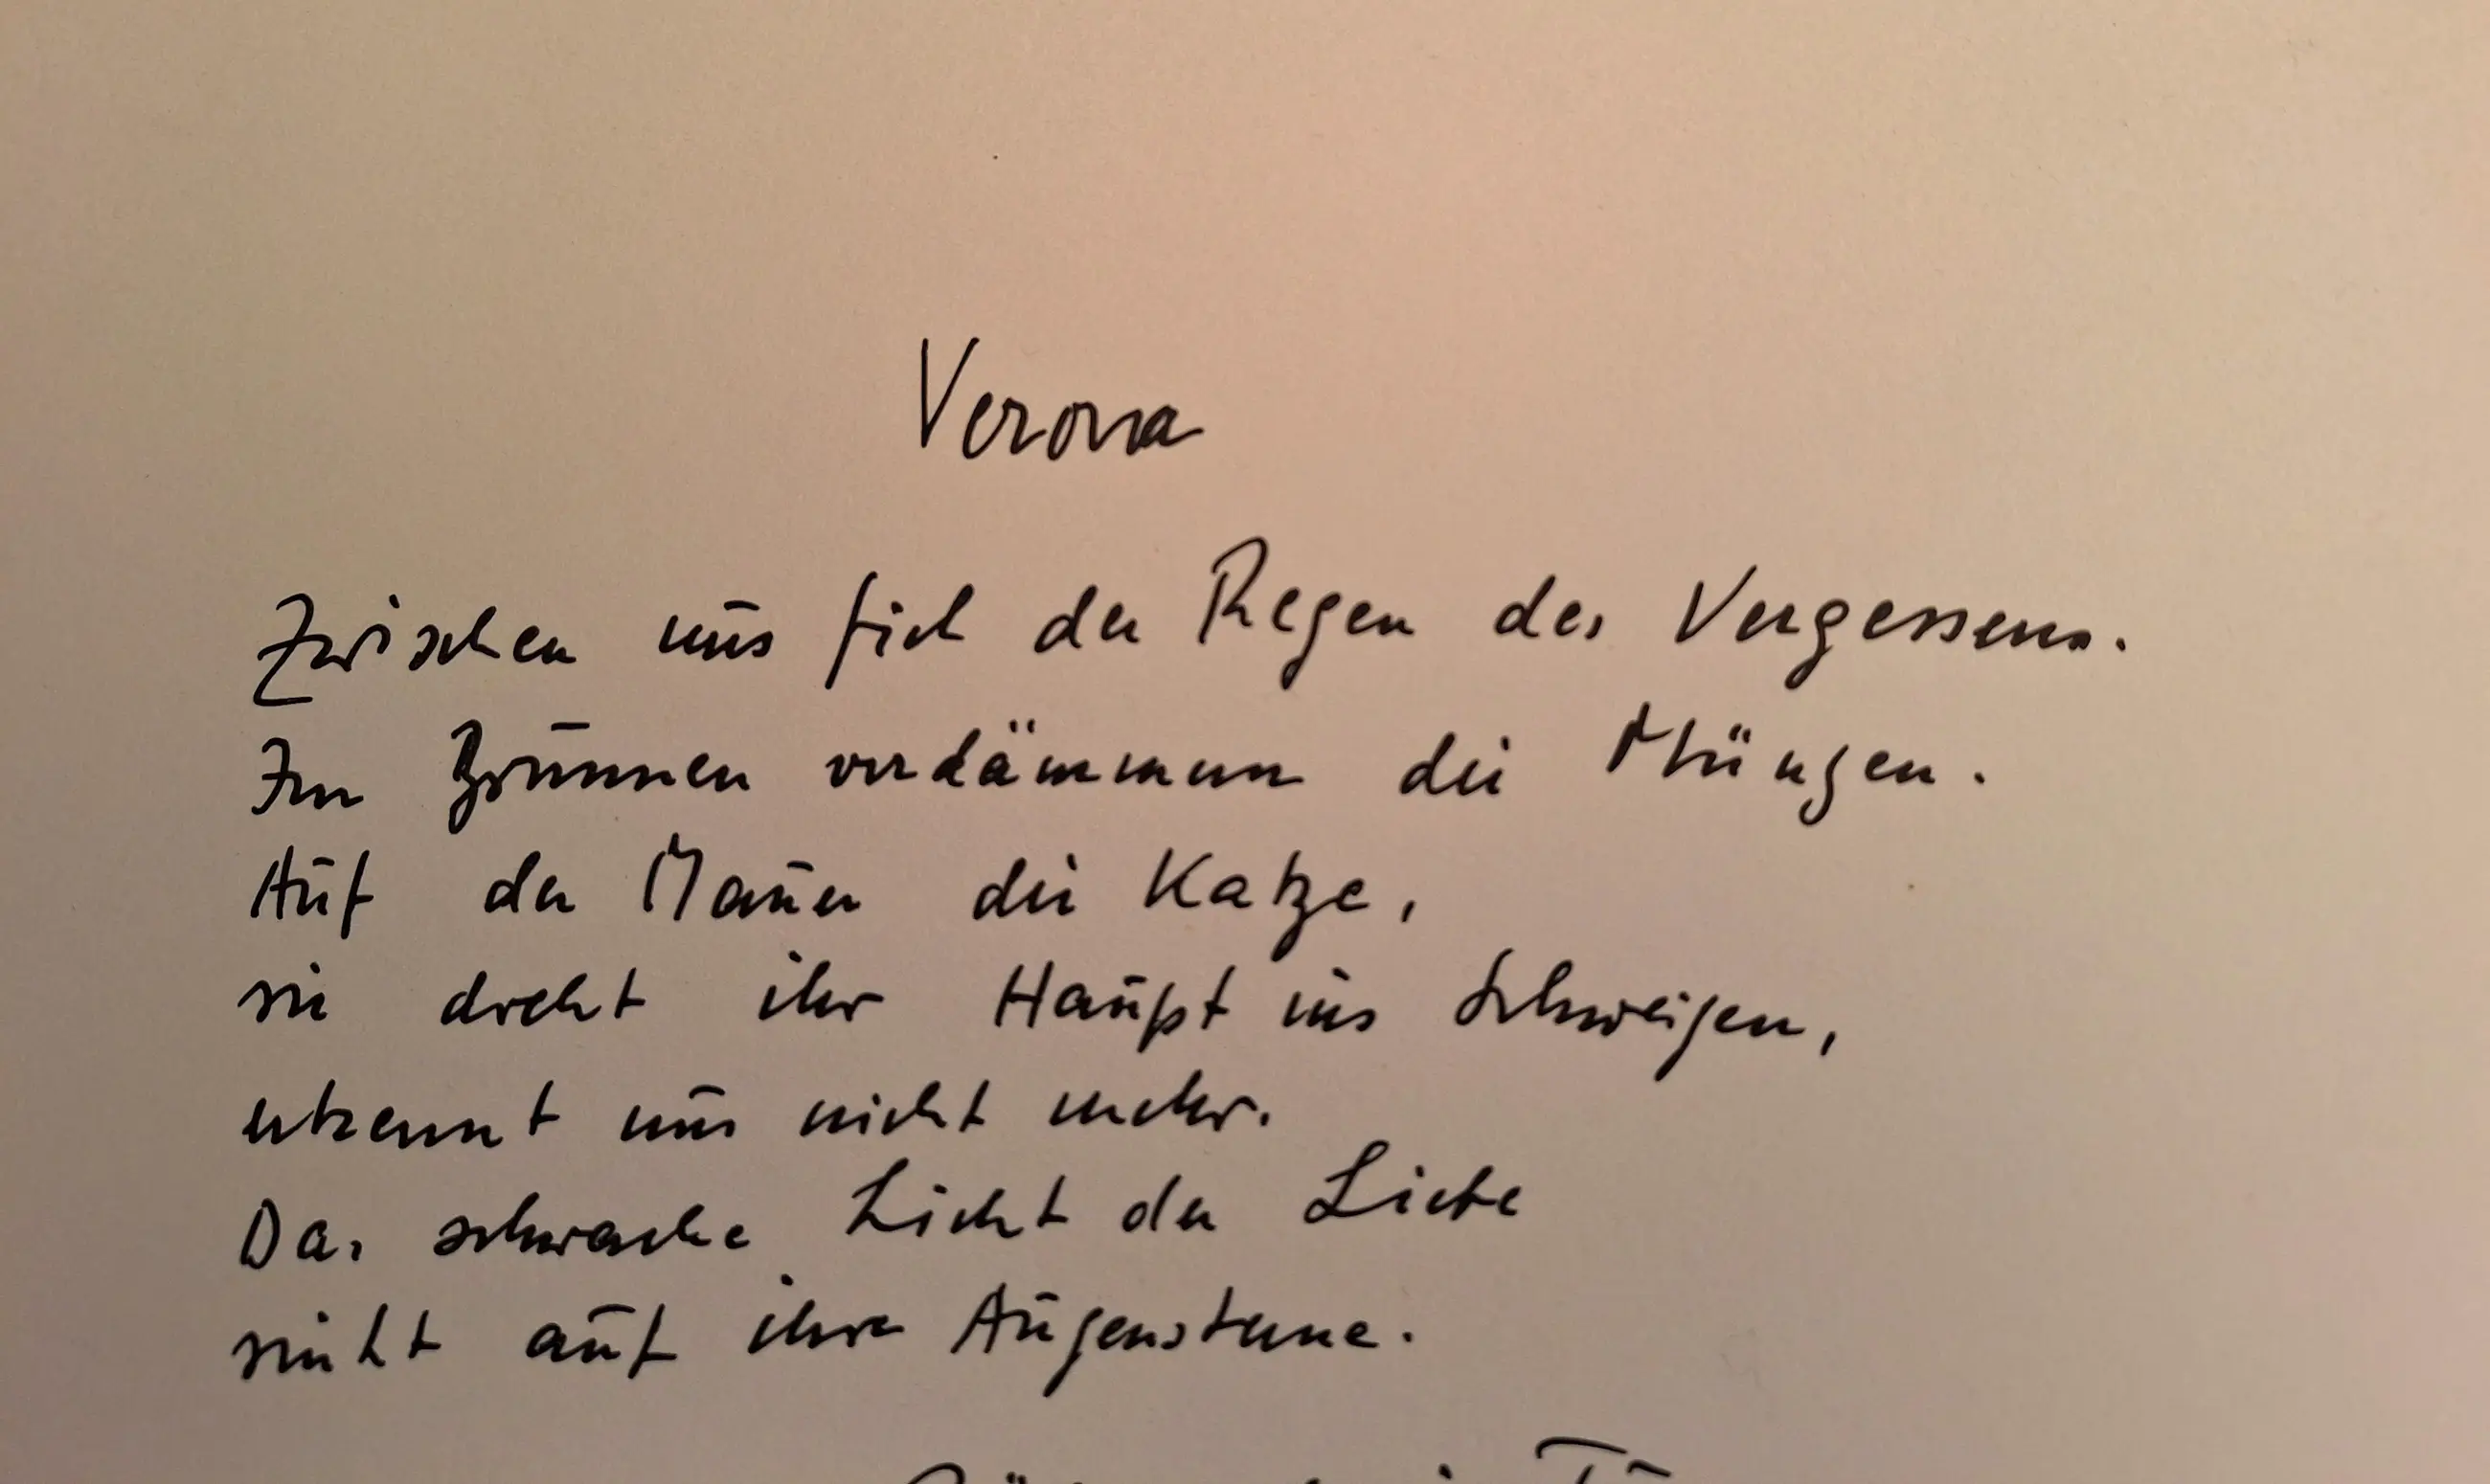 Verona
Zwischen uns fiel der Regen des Vergessens.
Im Brunnen verdämmern die Münzen.
Auf der Mauer die Katze,
sie dreht ihr Haupt ins Schweigen,
erkennt uns nicht mehr.
Das schwache Licht der Liebe
sinkt auf ihre Augensterne.